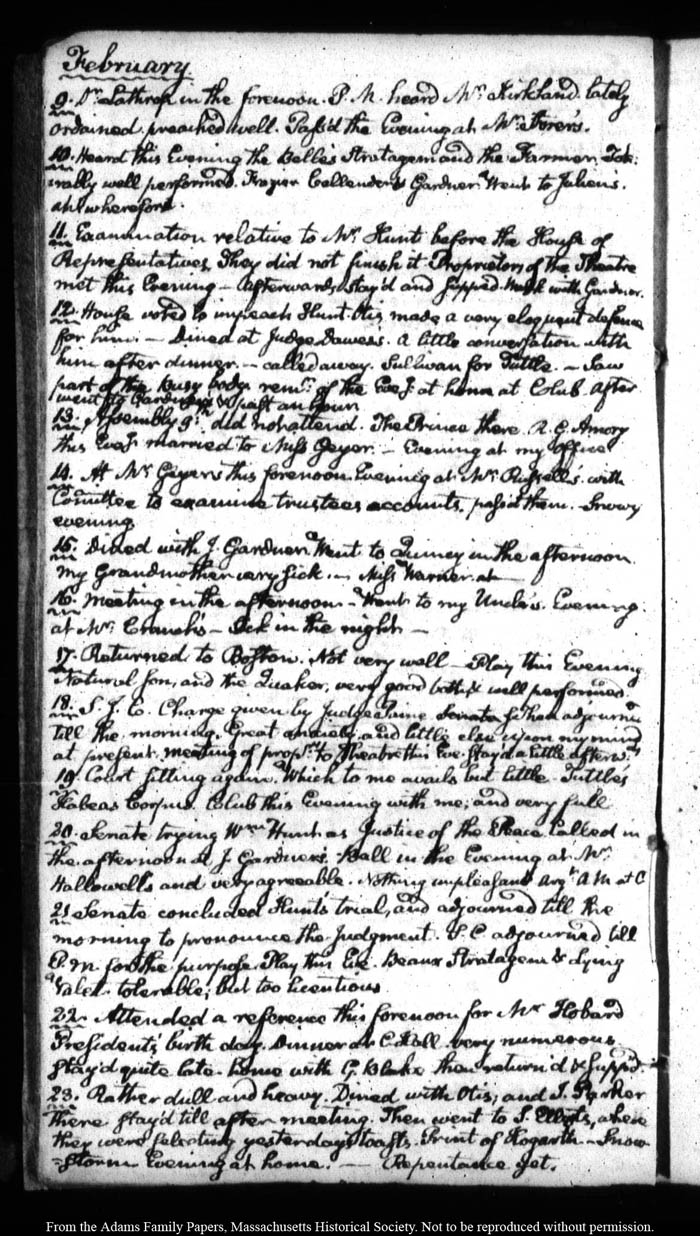 February
9. Dr. Lathrop in the forenoon. P. M. heard Mr. Kirkland lately
ordained. preached well. Pass'd the Evening at Mr.
10. Heard this Evening the Belle's Stratagem and the Farmer, Tole-
rably well performed. Frazier Callender & Gardner. Went to Julien's.
ah! wherefore.
11. Examination relative to Mr. Hunt before the House of
Representatives, They did not finish it. Proprietors of the Theatre
met this Evening — Afterwards stay'd and supped with Gardner.
12. House voted to impeach Hunt. Otis, made a very eloquent defence
for him. — Dined at Judge Dawes's. A little conversation with
him after dinner. — called away. Sullivan for Tuttle. — Saw
part of the Busy body. remr. of the Eveg. at home at Club. After
went to Gardner's & past an hour.
13. Assembly did not attend. The Prince there. R. G. Amory
this Eveg. married to Miss Geyer. — Evening at my office
14. At Mr. Geyer's this forenoon. Evening at Mr. Russell's. with
Committee to examine trustees accounts, pass'd them. Snowy
evening.
15. Dined with J. Gardner. Went to Quincy in the afternoon.
My Grandmother very sick. — Miss Warner at —
16. Meeting in the afternoon. — Went to my Uncle's. Evening
at Mr. Cranch's — Sick in the night —
17. Returned to Boston. Not very well — Play this Evening
Natural Son, and the Quaker, very good both & well performed.
18. S. J. C. Charge given by Judge Paine. Senate, & then adjourned
till the morning. Great anxiety, and little else upon my mind
at present. meeting of propr. to Theatre this Eve. Stay'd a little afterwds.
19. Court sitting again. Which to me avails but little. Tuttle's
Habeas Corpus. Club this Evening with me; and very full
20. Senate trying Wm. Hunt as Justice of the Peace. Called in
the afternoon at J. Gardner's. Ball in the Evening at Mr.
Hallowell's and very agreeable. Nothing unpleasant
21. Senate concluded Hunt's trial, and adjourned till the
morning to pronounce the Judgment. S. C. adjourned till
P. M. for the purpose. Play this Eve. Beaux Stratagem & Lying
Valet. tolerable; but too licentious.
22. Attended a reference this forenoon for Mr. Hobard
President's birth day. Dinner at C. Hall very numerous
stay'd quite late. home with G. Blake then return'd & supp'd.
23. Rather dull and heavy. Dined with Otis; and J. Parker
there stay'd till after meeting. Then went to S. Elliots, where
they were selecting yesterdays toasts. Print of Hogarth. — Snow
-storm Evening at home. — Repentance yet.
From the Adams Family Papers, Massachusetts Historical Society. Not to be reproduced without permission.